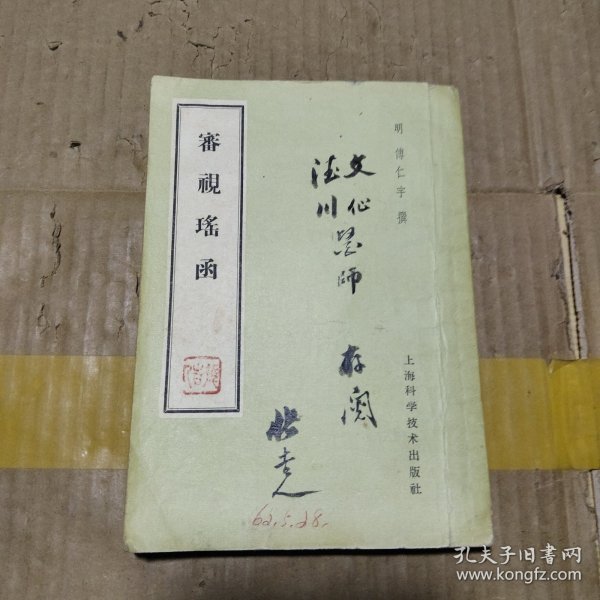 審視瑤函
明 傅仁宇 撰
上海科学技术出版社
文
川医师
存阅
62.5.28.
孔夫子旧书网
www.kongfz.com